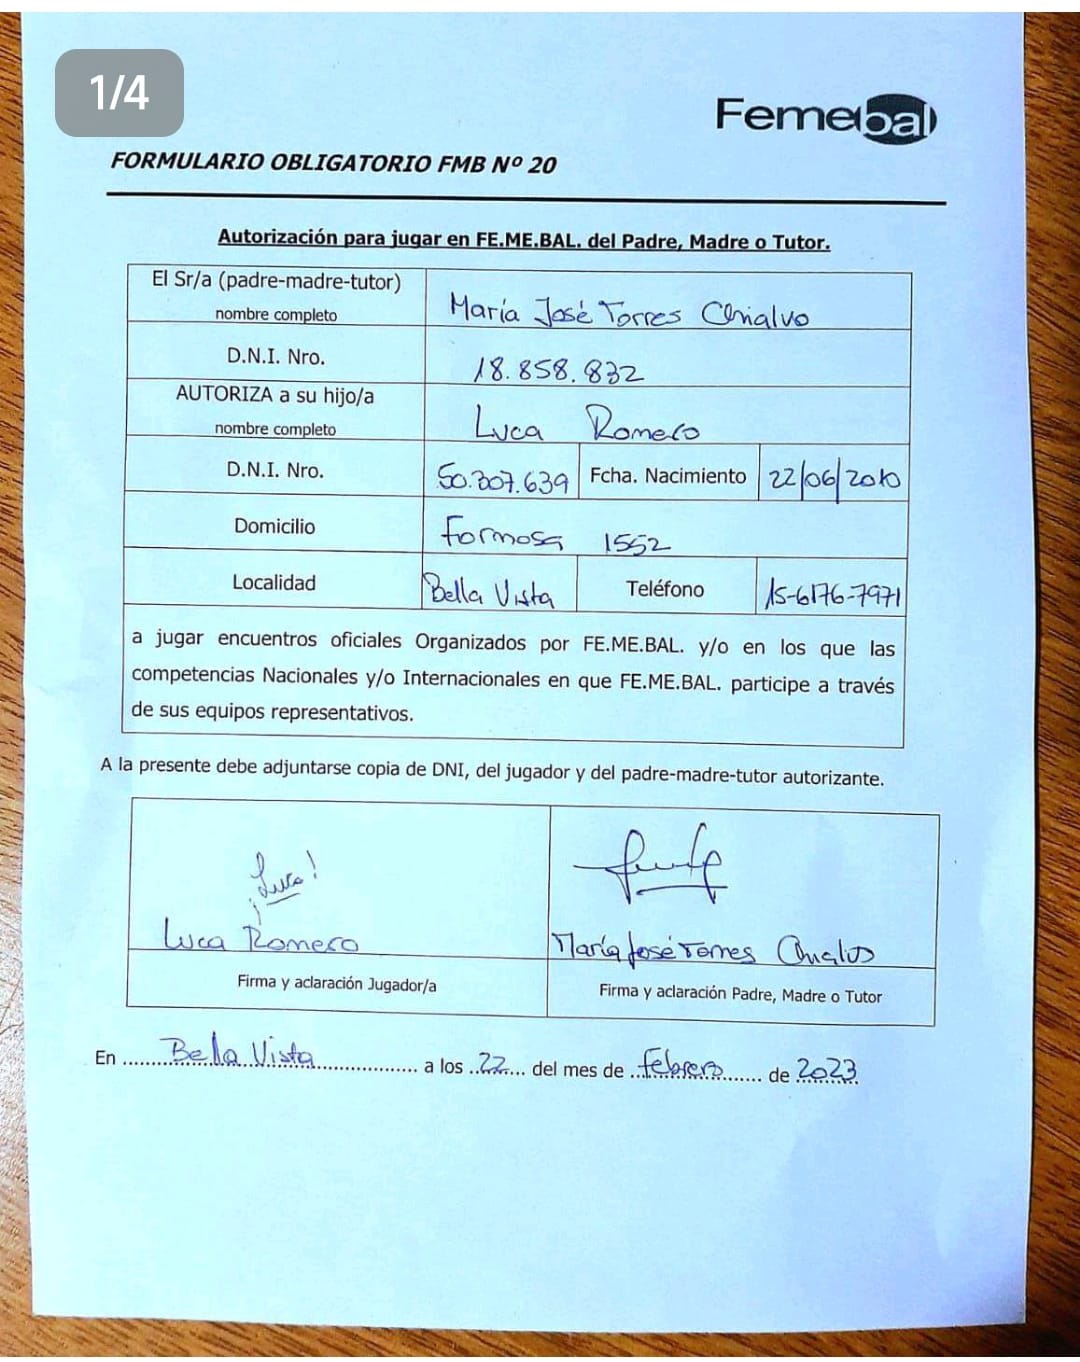 1/4
Femebal
FORMULARIO OBLIGATORIO FMB Nº 20
Autorización para jugar en FE.ME.BAL. del Padre, Madre o Tutor.
El Sr/a (padre-madre-tutor)
nombre completo
María José Torres
D.N.I. Nro.
18.858.832
AUTORIZA a su hijo/a
nombre completo
Luca Romero
D.N.I. Nro.
50.307.639
Fcha. Nacimiento
22/06/2010
Domicilio
Formosa 1552
Localidad
Bella Vista
Teléfono
15-6176-7971
a jugar encuentros oficiales Organizados por FE.ME.BAL. y/o en los que las
competencias Nacionales y/o Internacionales en que FE.ME.BAL. participe a través
de sus equipos representativos.
A la presente debe adjuntarse copia de DNI, del jugador y del padre-madre-tutor autorizante.
¡Luca!
Luca Romero
María José Torres
Firma y aclaración Jugador/a
Firma y aclaración Padre, Madre o Tutor
En Bella Vista a los 22 del mes de febrero de 2023